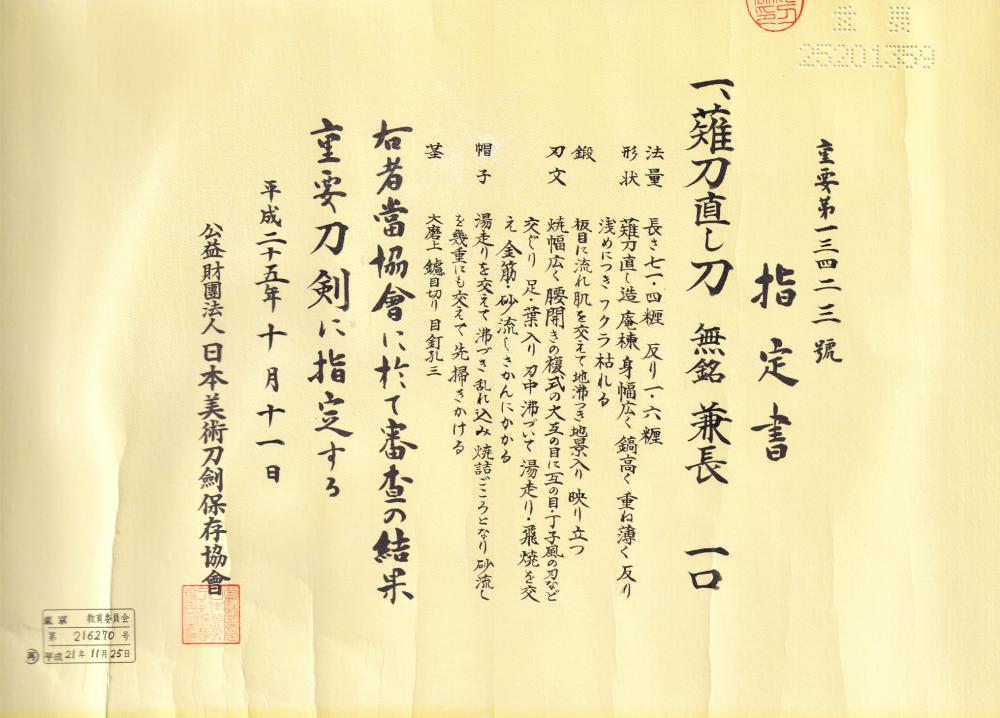 重要第一三四二三號
指定書
一、薙刀直し刀　無銘　兼長　一口
法量　長さ七一・四糎　反り一・六糎
形状　薙刀直し造　庵棟　身幅広く　鎬高く　重ね薄く　反り
浅めにつき　フクラ枯れる
鍛　板目に流れ肌を交えて地沸つき　地景入り　映り立つ
刃文　焼幅広く　腰開きの複式の大互の目に互の目・丁子風の刃など
交じり　足・葉入り　刃中沸づいて　湯走り・飛焼を交
え　金筋・砂流しさかんにかかる
帽子　湯走りを交えて沸づき　乱れ込み　焼詰ごころとなり　砂流し
を幾重にも交えて　先掃きかける
茎　大磨上　鑢目切り　目釘孔三
右者當協會に於て審査の結果
重要刀剣に指定する
平成二十五年十月十一日
公益財團法人日本美術刀劍保存協會
25201359
東京　教育委員会
第　216270　号
再　平成21年11月25日